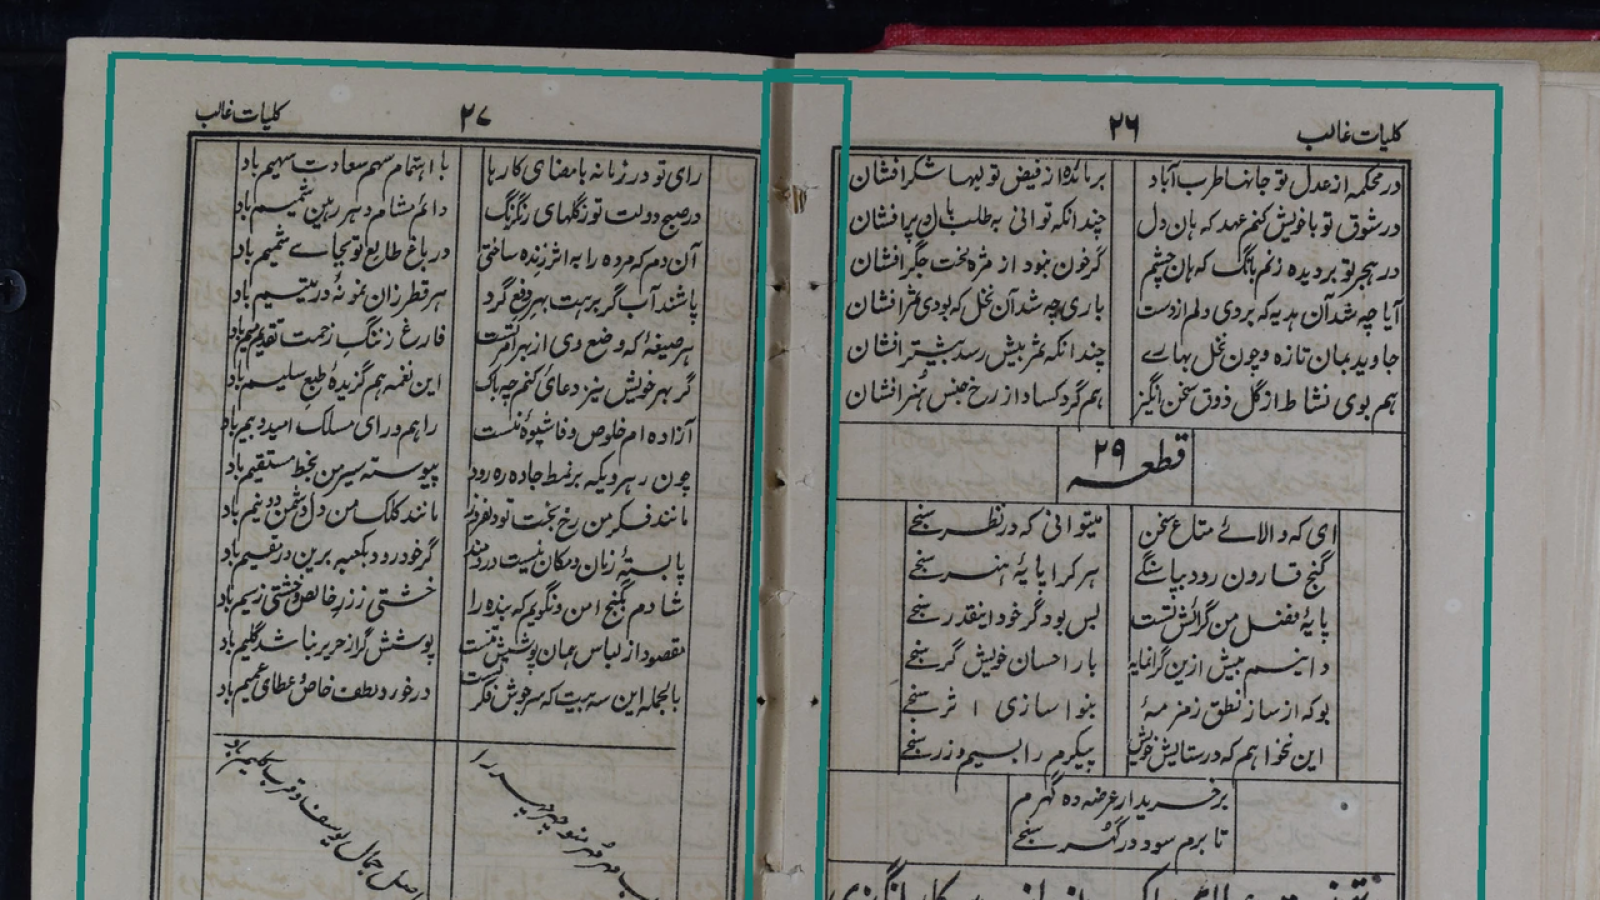 کلیات غالب
۲۶
در محکمه از عدل تو جانها طرب آباد
بر مائده از فیض تو لبها شکر افشان
در شوق تو با خویش کنم عهد که هان دل
چندانکه توانی به طلب بال و پر افشان
در هجر تو بر دیده زنم بانگ که هان چشم
گر خون نبود از مژه لخت جگر افشان
آیا چه شد آن هدیه که بردی ز دلم دست
باری چه شد آن نخل که بودی ثمر افشان
جاوید بمان تازه و چون نخل بهاے
چندانکه ثمر بیش رسد بیشتر افشان
هم بوی نشاط از گل ذوق سخن انگیز
هم گرد کساد از رخ جنس هنر افشان
قطعه ۲۹
ای که والائے متاع سخن
میتوانی که در نظر سنجے
گنج قارون رود بپاسنگے
هر کرا پایهٔ هنر سنجے
پایهٔ فضل من گرانش تست
بس بود گر خود اینقدر سنجے
دانیم بیش ازین گرانمایه
بار احسان خویش گر سنجے
بو که از ساز نطق زمزمهٔ
بنوا سازی اثر سنجے
این نخواهم که در ستایش خویش
پیکرم را بسیم و زر سنجے
بر خریدار عرضه ده گهرم
تا برم سود در گهر سنجے
کلیات غالب
۲۷
رای تو در زمانه بامضای کارها
با اهتمام سهم سعادت سهیم باد
در صبح دولت تو ز گلهای رنگرنگ
دائم مشام دهر رهین شمیم باد
آن دم که مرده را به اثر زنده ساختی
در باغ طالع تو بجاے شمیم باد
پاشند آب گر برهت بهر دفع گرد
هر قطره زان نمونهٔ در یتیم باد
هر صیغهٔ که وضع وی از بهر امر تست
فارغ ز ننگ زحمت تقدیم میم باد
گر بهر خویش نیز دعای کنم چه باک
این نغمه هم گزیدهٔ طبع سلیم باد
آزاده ام خلوص و فا شیوهٔ منست
راهم ورای مسلک امید و بیم باد
چون رهرویکه بر نمط جاده ره رود
پیوسته سیر من بخط مستقیم باد
مانند فکر من رخ بخت تو دلفروز
مانند کلک من دل دشمن دو نیم باد
پابستهٔ زمان و مکان نیست دردمند
گر خود رود بکعبه برین در مقیم باد
شادم بکنج امن و نگویم که بنده را
خشتی ز زر خالص و خشتی ز سیم باد
مقصود از لباس همان پوشش تنست
پوشش گر از حریر نباشد گلیم باد
بالجمله این سه بیت که سرجوش فکر تست
در خورد لطف خاص و عطای عمیم باد